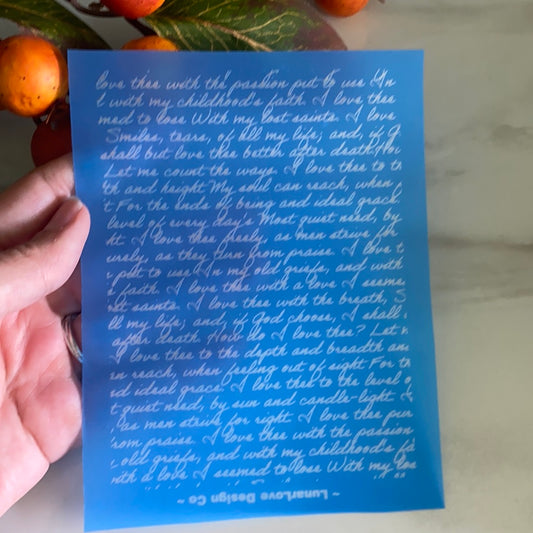 love thee with the passion put to use In
t with my childhood's faith. I love thee
med to lose With my lost saints. I love
Smiles, tears, of all my life; and, if G
shall but love thee better after death. Ho
Let me count the ways. I love thee to t
th and height My soul can reach, when
t For the ends of being and ideal grace
level of every day's Most quiet need, by
ht. I love thee freely, as men strive for
urely, as they turn from praise. I love t
put to use In my old griefs, and with
faith. I love thee with a love I seeme
ost saints. I love thee with the breath, S
ll my life; and, if God choose, I shall
after death. How do I love thee? Let
I love thee to the depth and breadth an
en reach, when feeling out of sight For t
nd ideal grace. I love thee to the level o
t quiet need, by sun and candle-light.
as men strive for right. I love thee pur
rom praise. I love thee with the passion
old griefs, and with my childhood's fa
with a love I seemed to lose With my los
~ LunarLove Design Co ~